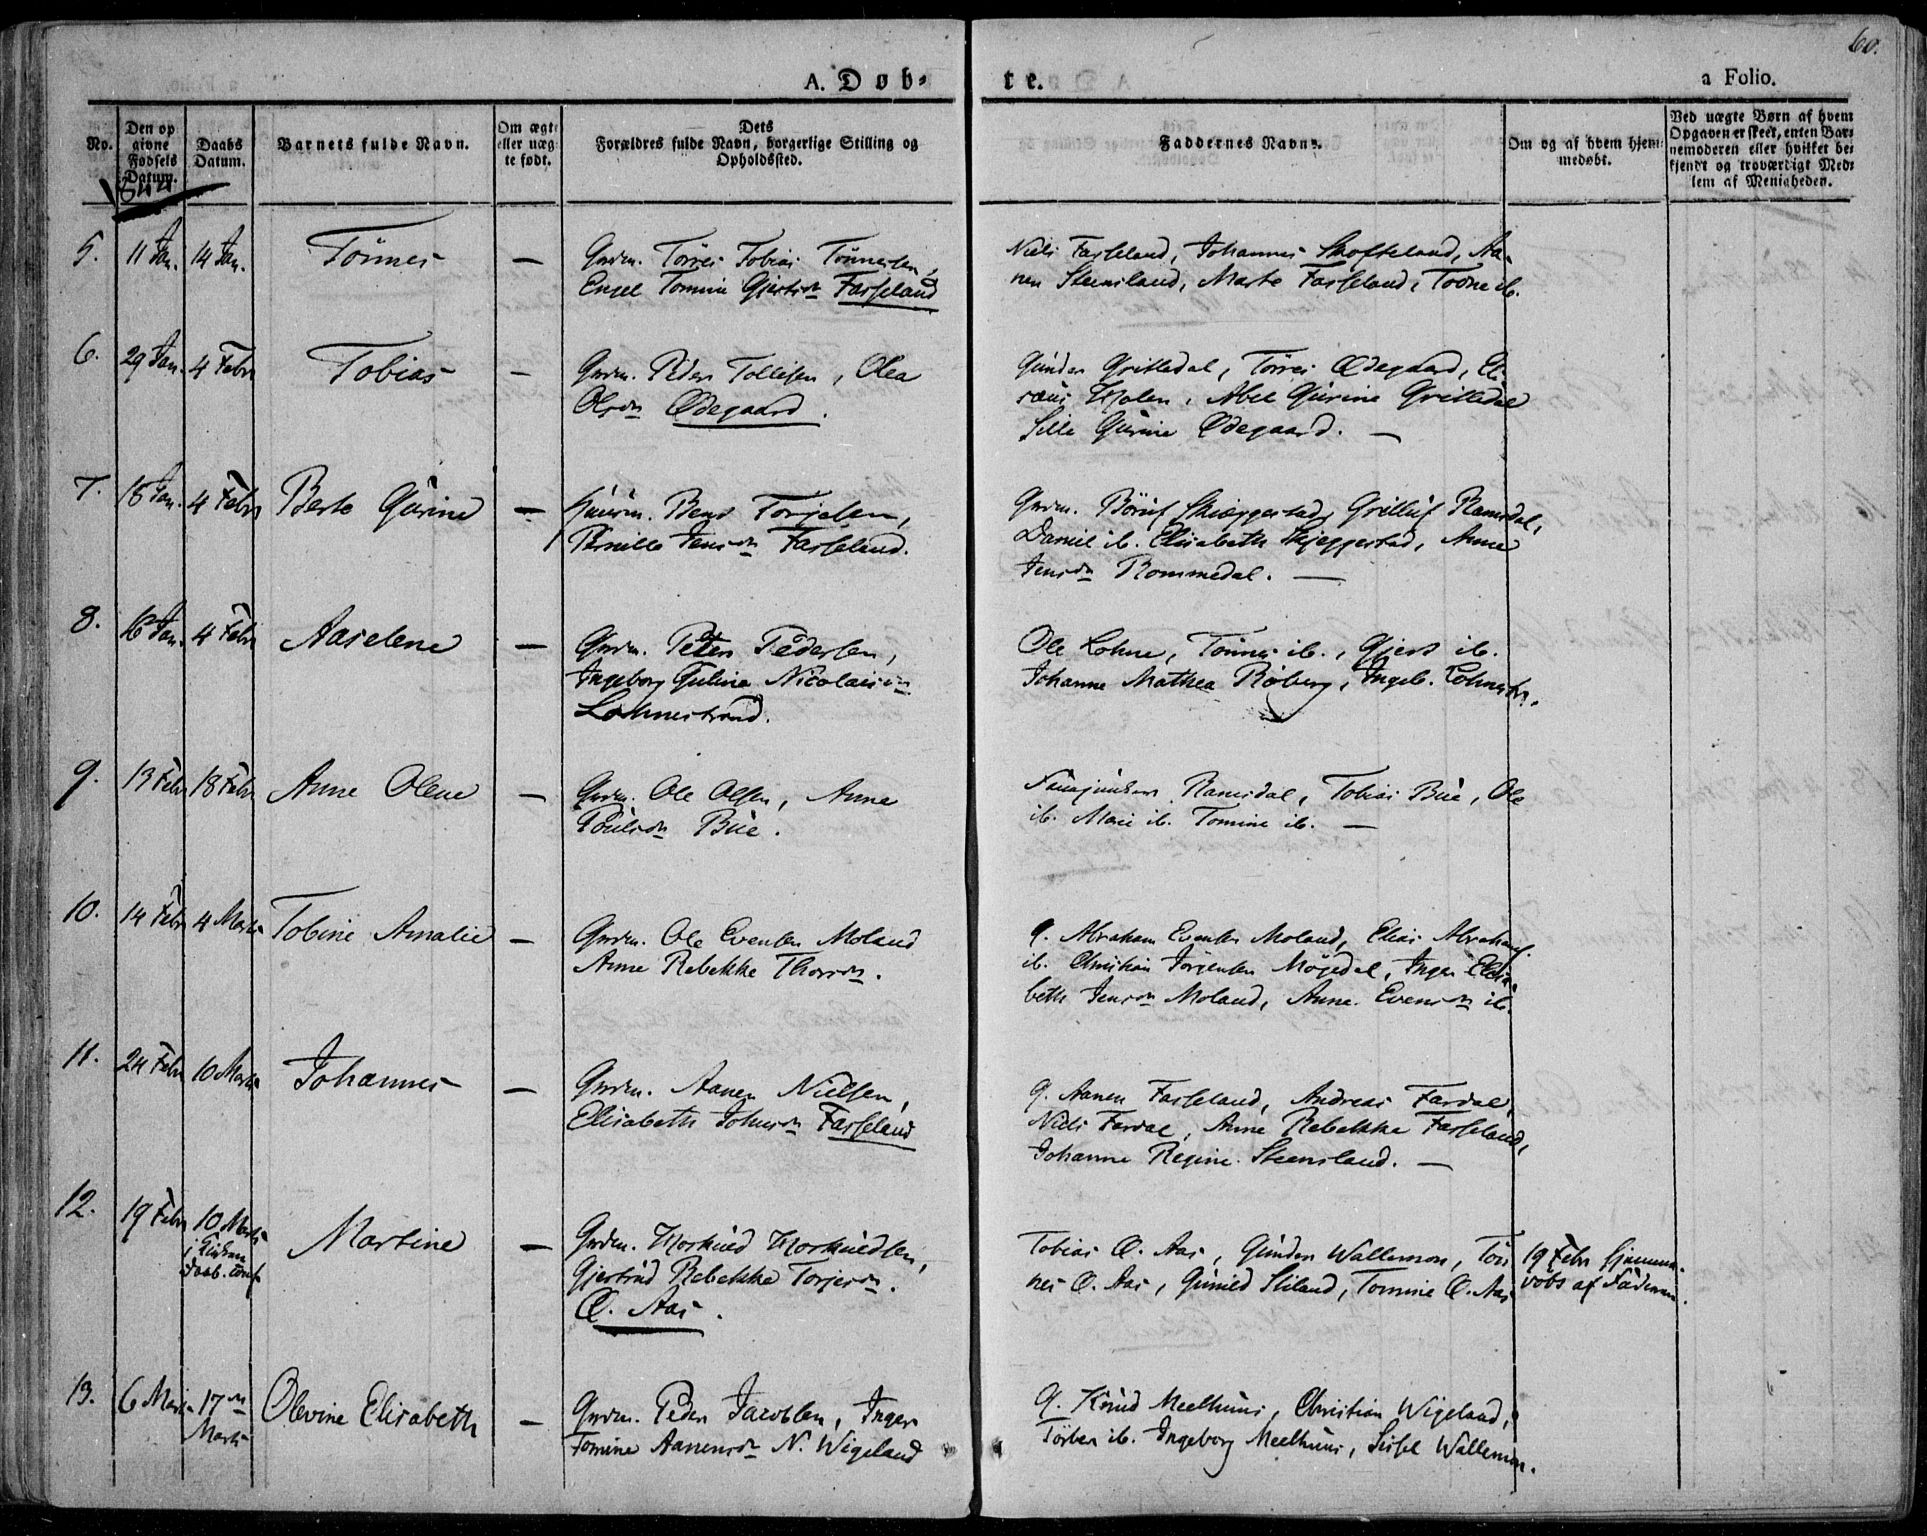 60.
A. Døb-
te.
a Folio.
No.
Den op
givne
Fødsels
Datum.
Daabs
Datum.
Barnets fulde Navn.
Om ægte
eller uæg
te født.
Dets
Forældres fulde Navn, borgerlige Stilling og
Opholdssted.
Faddernes Navne.
Om og af hvem hjem-
medøbt.
Ved uægte Børn af hvem
Opgaven er skeet, enten Bar-
nemoderen eller hvilket be-
kjendt og troværdigt Med-
lem af Menigheden.
5. 11 Jan. 14 Jan. Tönnes — Grdm. Törres Tobias Tönnesen,
Engel Tomine Gjertsdn Fasseland
Niels Fasseland, Johannes Skofteland, Aa-
nen Steensland, Marte Fasseland, Todne ib.
6. 29 Jan. 4 Febr Tobias — Grdm. Peder Tollisen, Olea
Olsdn Ødegaard.
Gunder Grilledal, Törres Ødegaard, Eli-
ræus Holen, Abel Gurine Grilledal
Sille Gurine Ødegaard. —
7. 15 Jan. 4 Febr Berte Gurine — Huusm. Bent Torjesen,
Pernille Jensdn Fasseland.
Grdm. Börüf Skiæggestad, Grölluf Ramsdal,
Daniel ib. Elisabeth Skjeggestad, Anne
Jensdn Rommedal. —
8. 16 Jan. 4 Febr Aaselene — Grdm. Peter Pedersen,
Ingeborg Guline Nicolaisdn
Lohnestrand.
Ole Lohne, Tönnes ib., Gjert ib.
Johanne Mathea Röberg, Ingeb. Lohnestr.
9. 13 Febr 18 Febr Anne Olene — Grdm. Ole Olsen, Anne
Poulsdn Büe.
Ramsdal, Tobias Büe, Ole
ib. Marie ib. Tomine ib. —
10. 14 Febr 4 Marts Tobine Amalie — Grdm. Ole Evensen Moland
Anne Rebekke Thorsdn.
G. Abraham Evensen Moland, Elias Abrahams.
ib. Christian Jörgensen Möjedal, Inger Elisa-
beth Jensdn Moland, Anne Evensdn ib.
11. 24 Febr 10 Marts Johannes — Grdm. Aanen Nielsen,
Elisabeth Johnsdn Fasseland
G. Aanen Fasseland, Andreas Fardal,
Niels Fardal, Anne Rebekke Fasseland,
Johanne Regine Steensland. —
12. 19 Febr 10 Marts
i Kirken
Daab. conf.
Martine — Grdm. Torkild Torkildsen,
Gjertrud Rebekke Torjesdn.
Ø. Aas.
Tobias Ø. Aas, Gunder Wallemon, Tön-
nes Ø. Aas, Gunild Stiland, Tomine Ø. Aas
19 Febr hjemme-
döbt af Faderen.
13. 6 Marts 17de
Marts
Olevine Elisabeth — Grdm. Peder Jacobsen, Inger
Tomine Aanensdn N. Wigeland
G. Knud Meelhuus, Christian Wigeland,
Torber ib. Ingeborg Meelhuus, Sissel Wallemon.